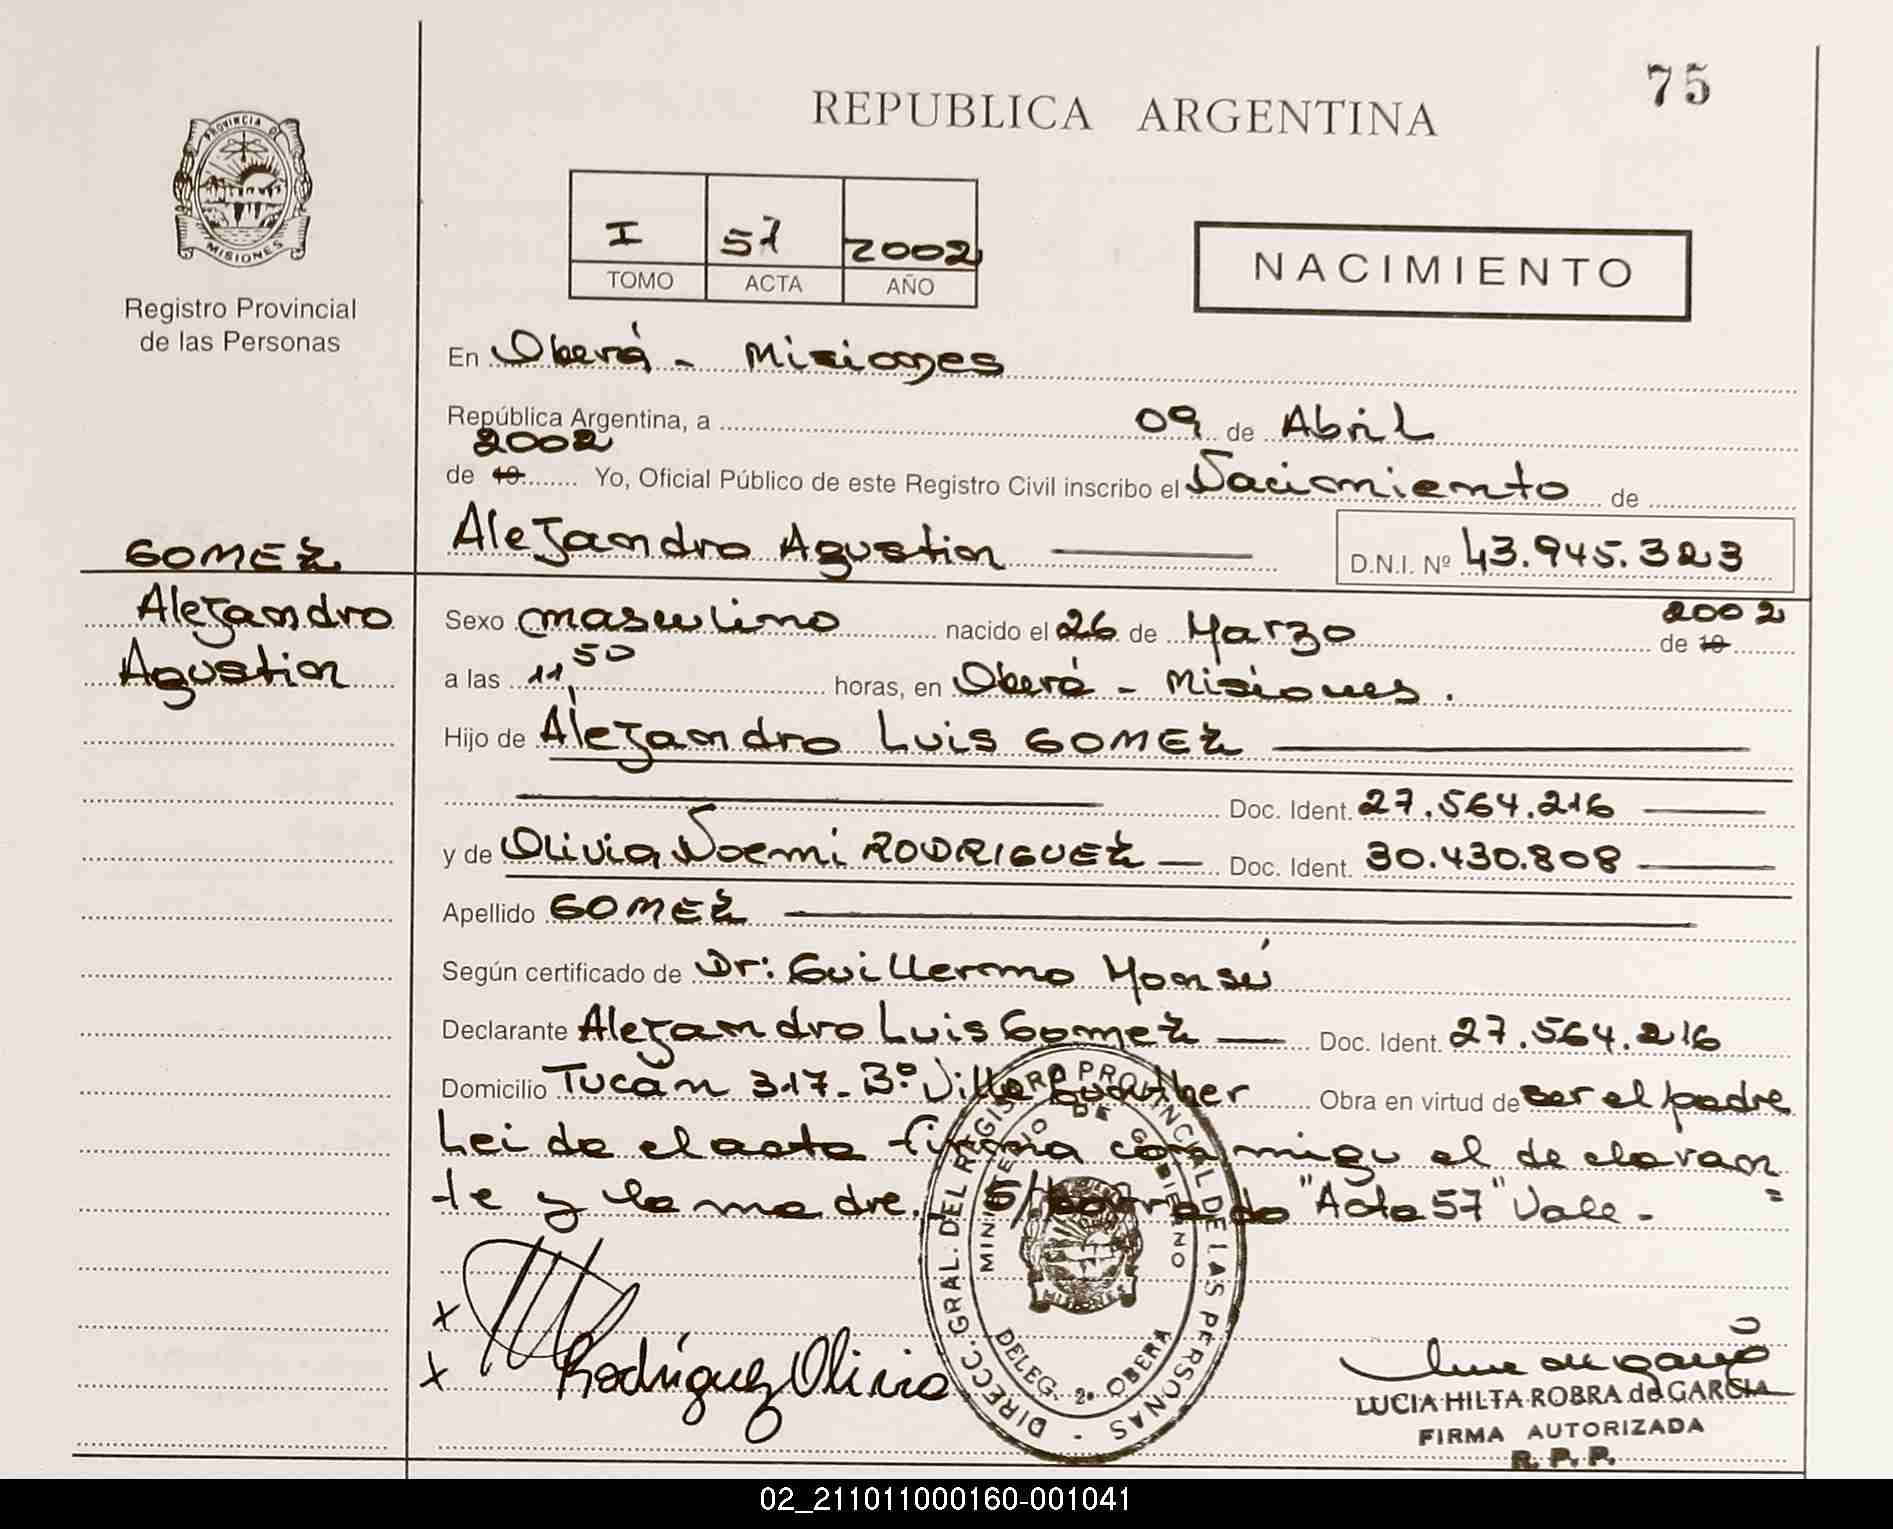 75
REPUBLICA ARGENTINA
PROVINCIA DE
MISIONES
Registro Provincial
de las Personas
I 57 2002
TOMO ACTA AÑO
NACIMIENTO
En Oberá - Misiones
República Argentina, a 09 de Abril
2002
de 19 Yo, Oficial Público de este Registro Civil inscribo el Nacimiento de
Alejandro Agustin D.N.I. Nº 43.945.323
GOMEZ
Alejandro
Agustin
Sexo masculino nacido el 26 de Marzo de 19 2002
a las 11,50 horas, en Oberá - Misiones.
Hijo de Alejandro Luis GOMEZ
Doc. Ident. 27.564.216
y de Olivia Noemi RODRIGUEZ Doc. Ident. 30.430.808
Apellido GOMEZ
Según certificado de Dr: Guillermo
Declarante Alejandro Luis Gomez Doc. Ident. 27.564.216
Domicilio Tucan 317- Bº Villa Obra en virtud de ser el padre
Leida el acta firma conmigo el declaran
te y la madre. S/borrado "Acta 57" Vale.-
DIRECC. GRAL. DEL REGISTRO PROVINCIAL DE LAS PERSONAS -
MINISTERIO DE GOBIERNO
MISIONES
DELEG. 2ª OBERA
x
x Rodríguez Olivia
LUCIA HILTA ROBRA de GARCIA
FIRMA AUTORIZADA
R. P. P.
02_211011000160-001041